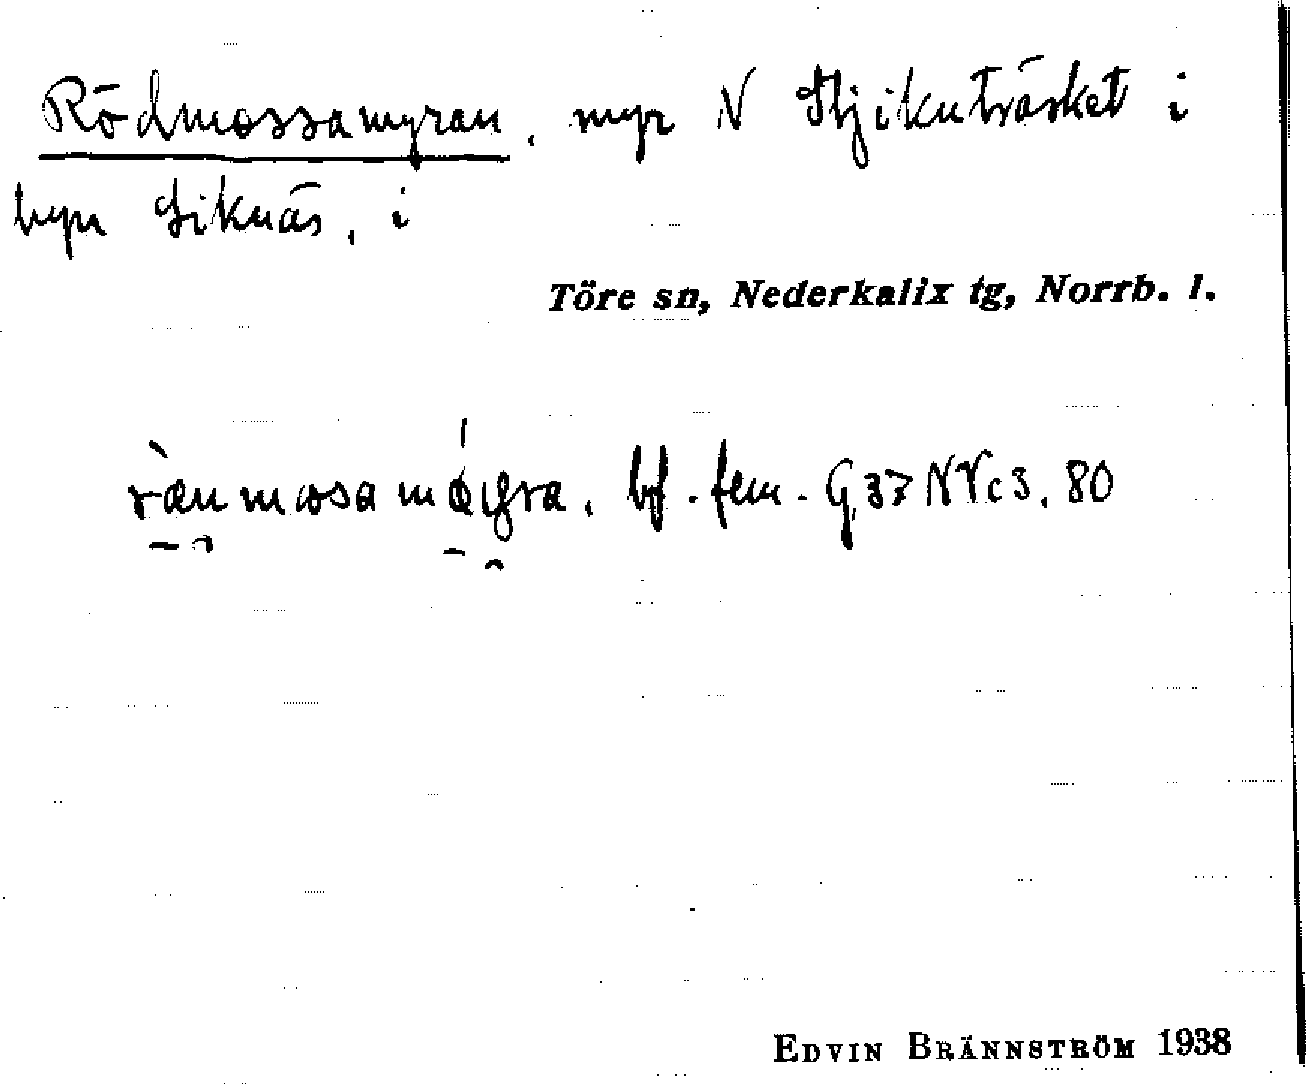 Rödmossamyran, myr N Stjikuträsket i
byn Siknäs, i
Töre sn, Nederkalix tg, Norrb. l.
bf. fem. G 37 NVc3, 80
EDVIN BRÄNNSTRÖM 1938